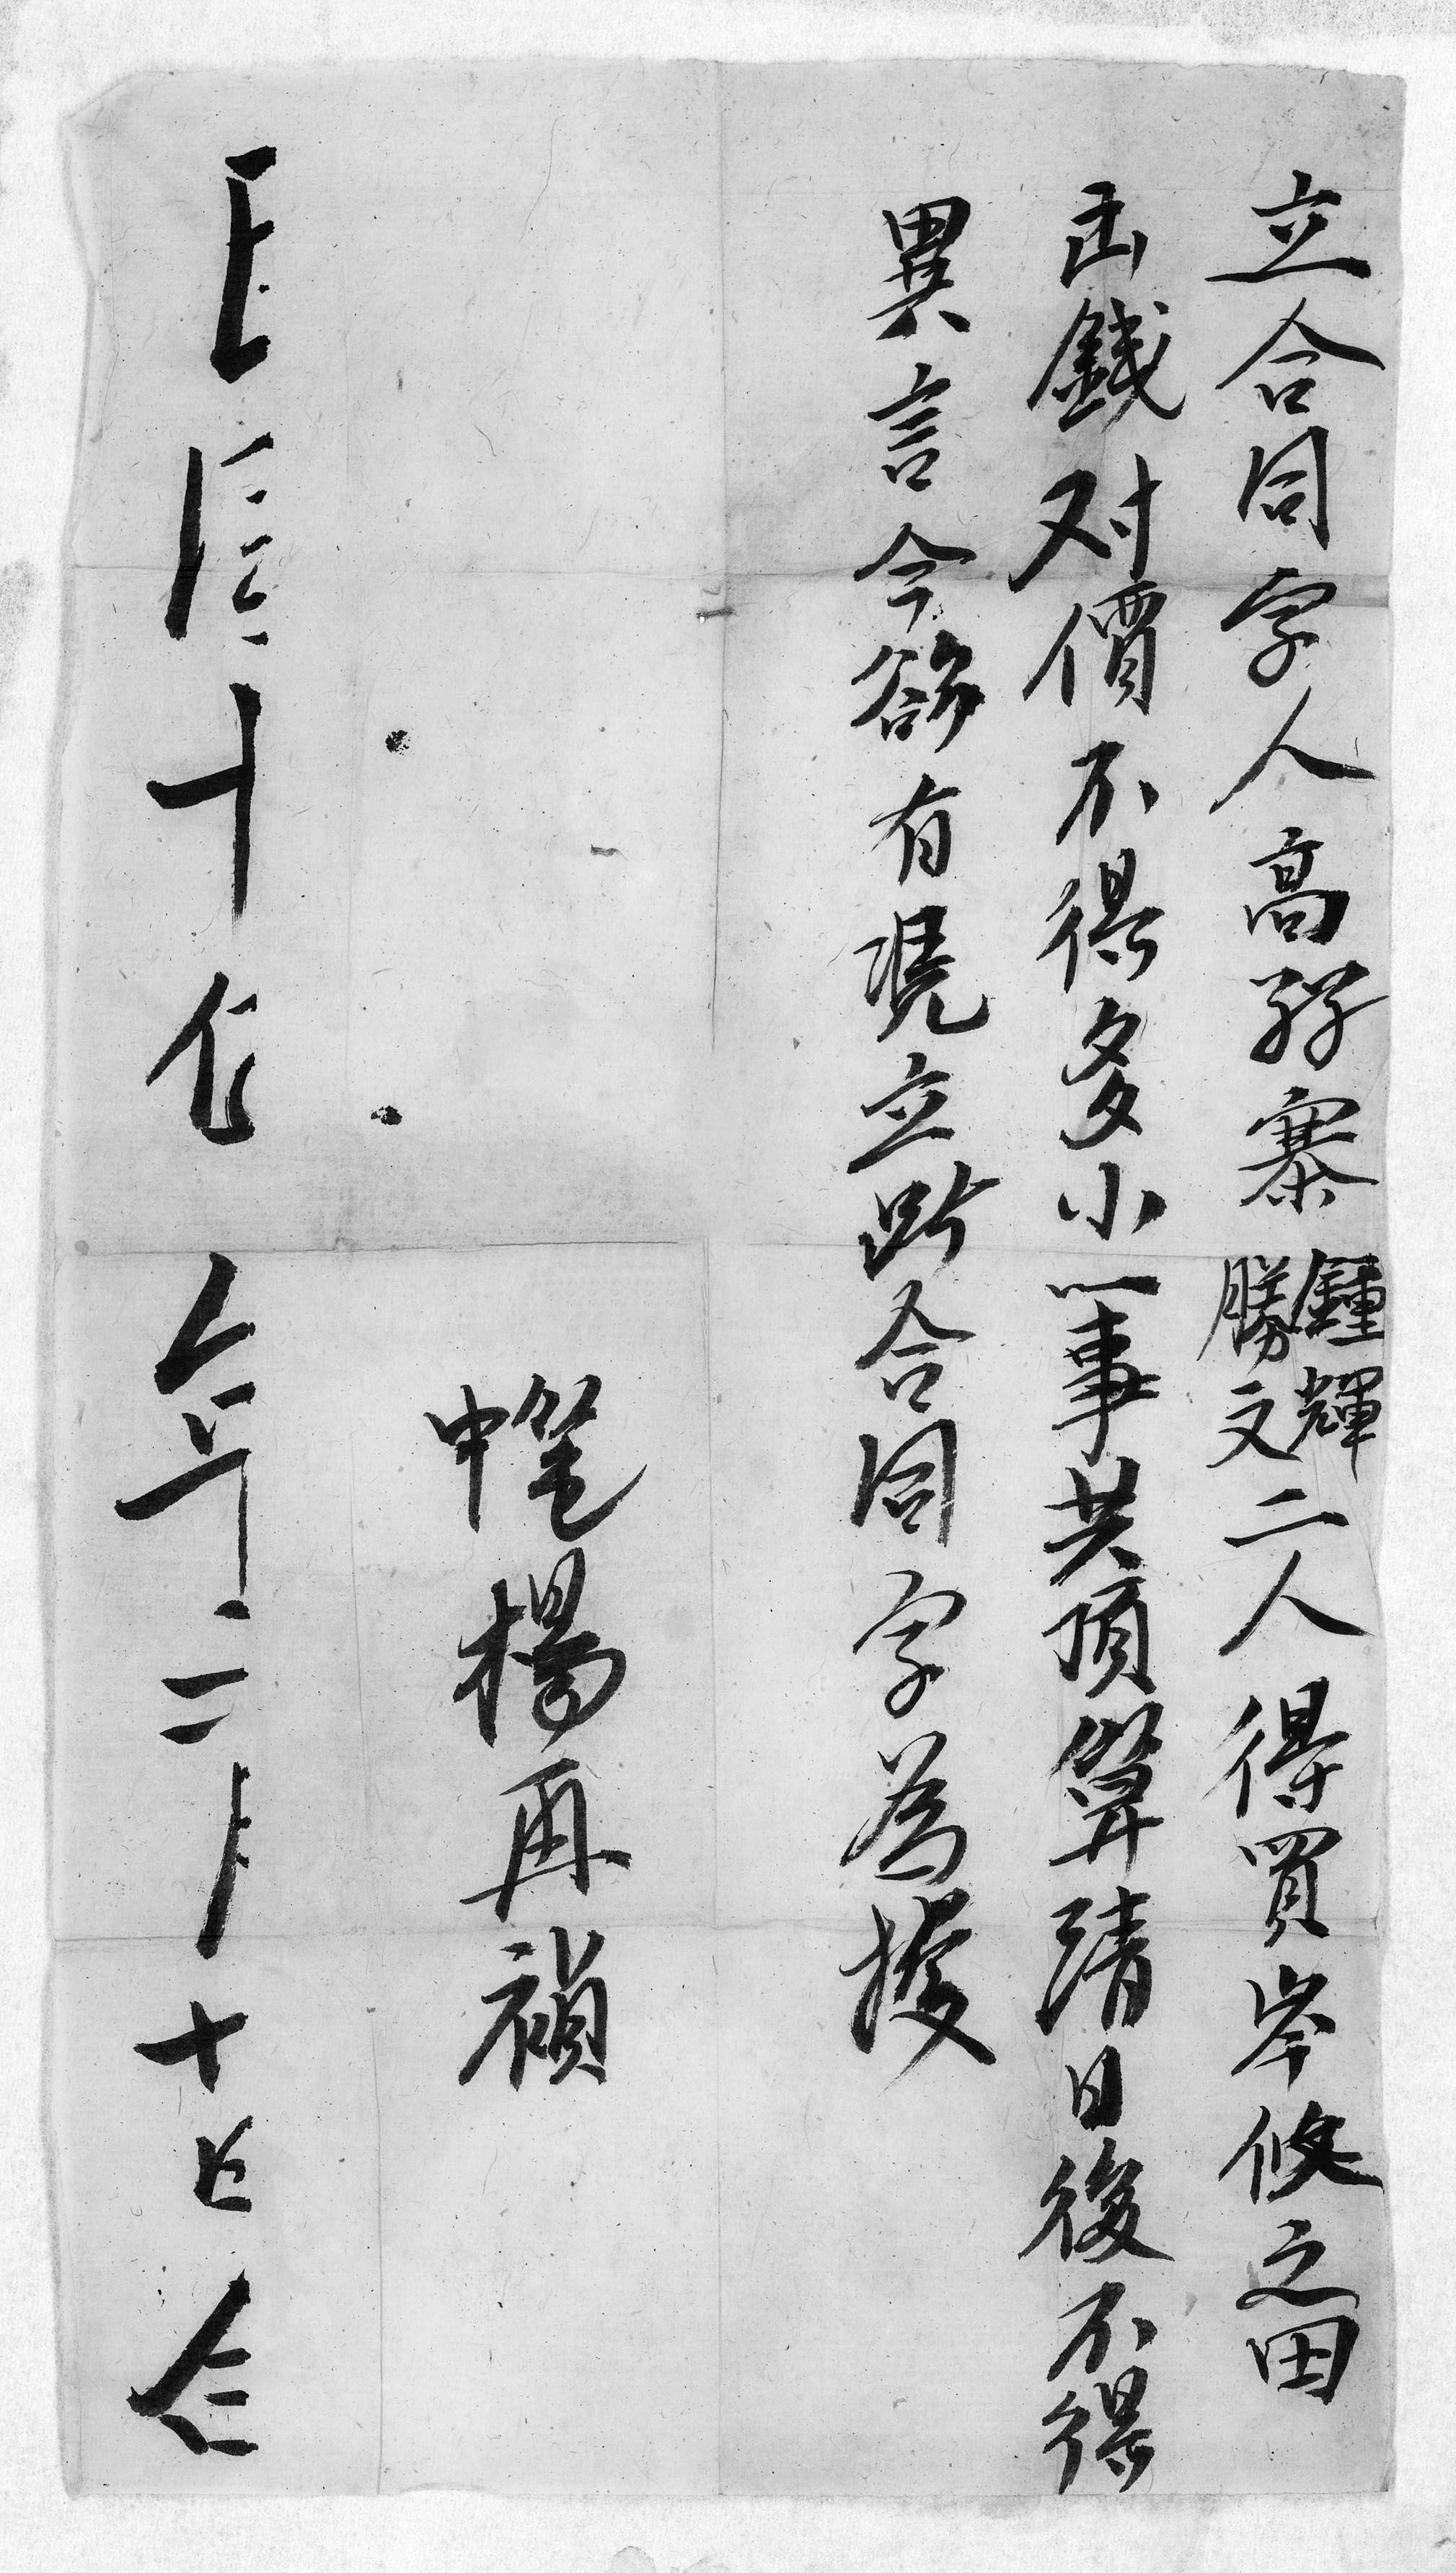 立合同字人高孖寨鍾輝勝文二人得買岑修之田
出錢对價不得多小一事共項算清日後不得
異言今欲有凴立此合同字為據
中筆楊再禎
年二月十